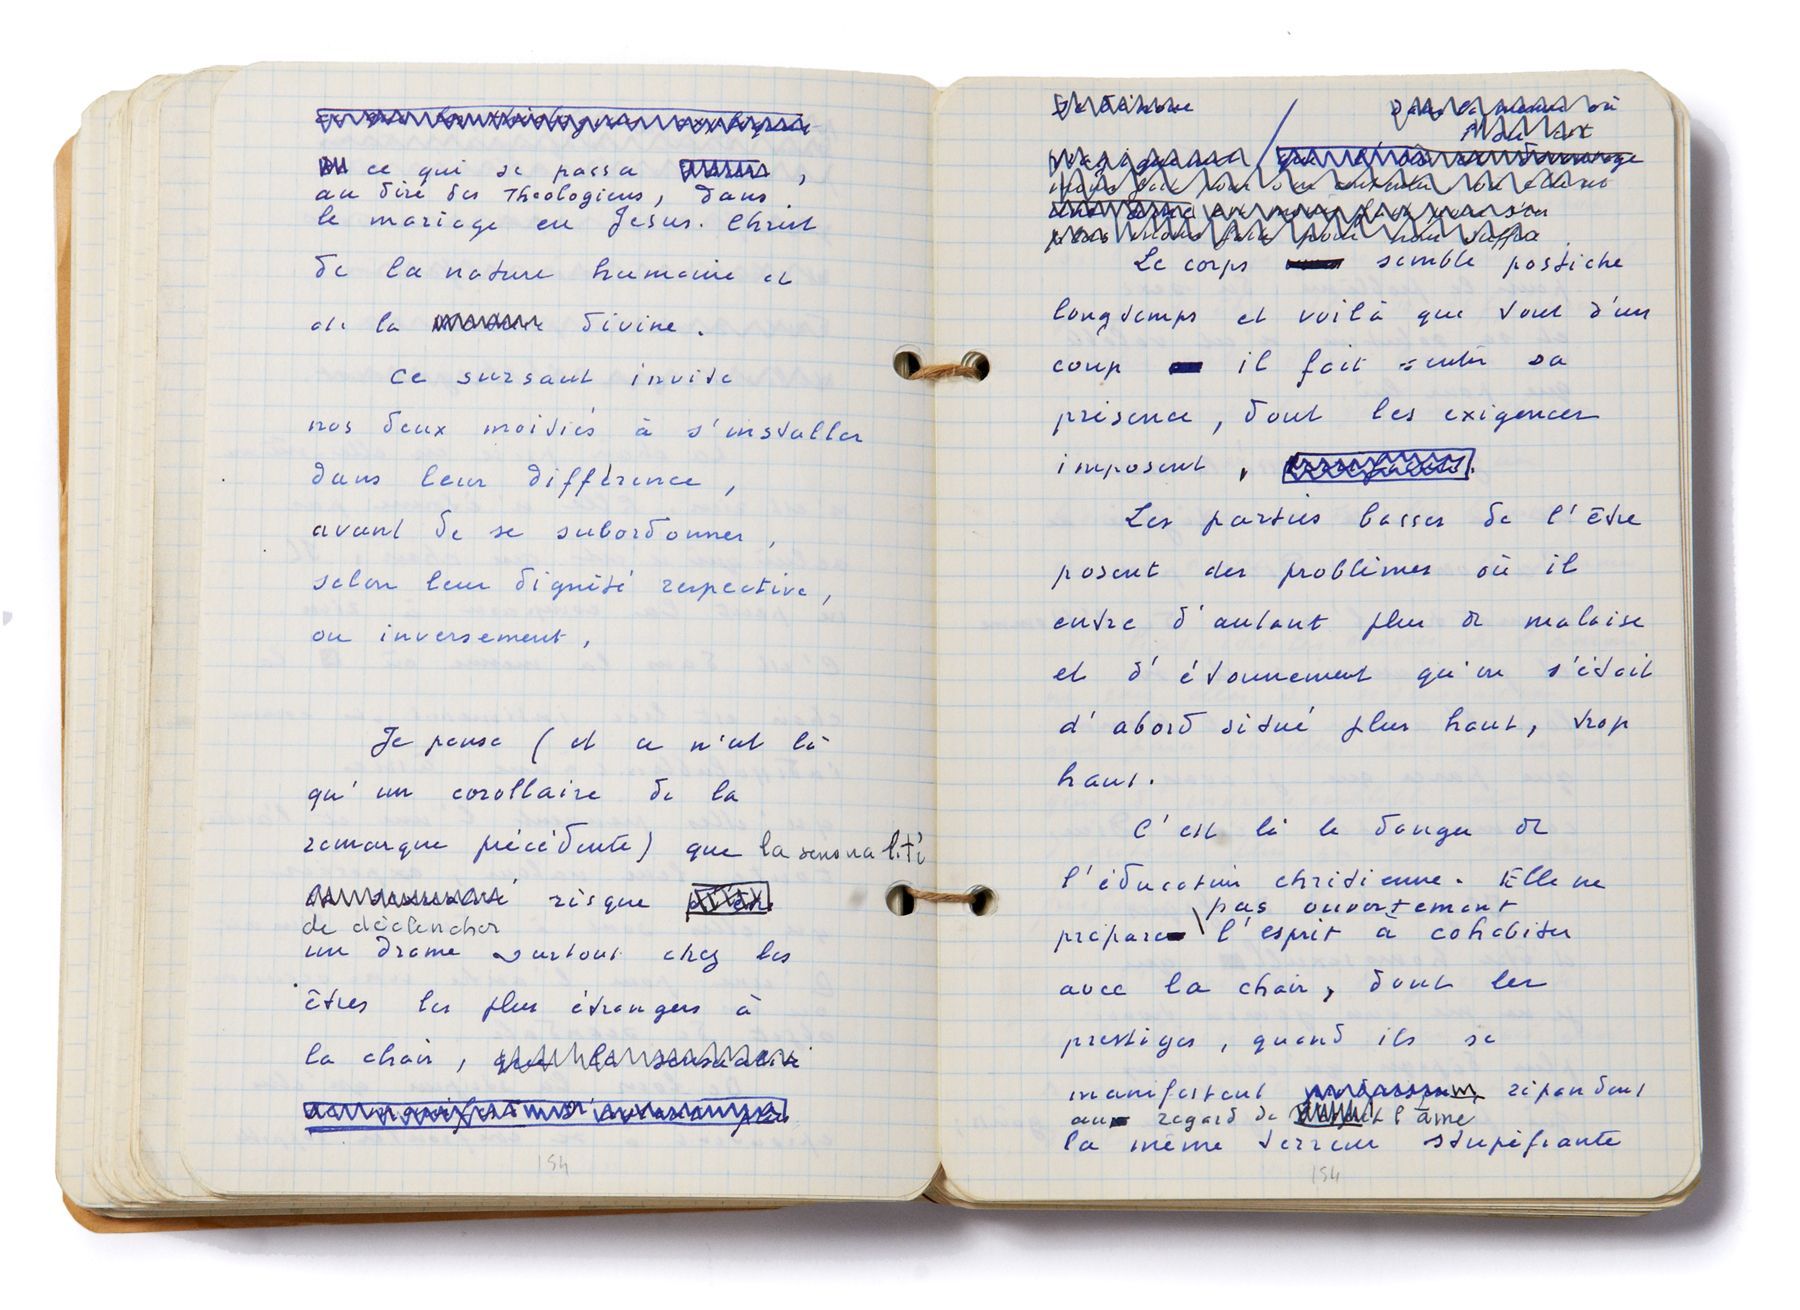 ce qui se passa ,
au dire des Théologiens, dans
le mariage en Jésus. Christ
de la nature humaine et
de la divine.
Ce sursaut invite
nos deux moitiés à s'installer
dans leur différence,
avant de se subordonner,
selon leur dignité respective,
ou inversement,
Je pense ( et ce n'est là
qu'un corollaire de la
remarque précédente) que la sensualité
risque
de déclencher
un drame surtout chez les
êtres les plus étrangers à
la chair, que la
154
où
Le corps semble postiche
longtemps et voilà que tout d'un
coup il fait sentir sa
présence, dont les exigences
imposent,
Les parties basses de l'être
posent des problèmes où il
entre d'autant plus de malaise
et d'étonnement qu'on s'était
d'abord situé plus haut, trop
haut.
C'est là le danger de
l'éducation chrétienne. Elle ne
pas ouvertement
prépare l'esprit à cohabiter
avec la chair, dont les
prestiges, quand ils se
manifestent répandent
au regard de l'âme
la même terreur stupéfiante
154